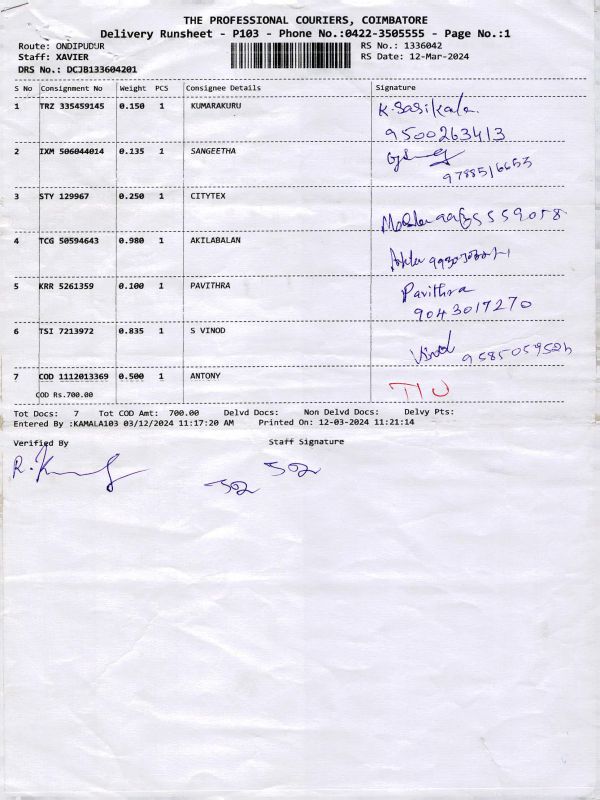 THE PROFESSIONAL COURIERS, COIMBATORE
Delivery Runsheet - P103 - Phone No.:0422-3505555 - Page No.:1
Route: ONDIPUDUR RS No.: 1336042
Staff: XAVIER RS Date: 12-Mar-2024
DRS No.: DCJB133604201
S No Consignment No Weight PCS Consignee Details Signature
1 TRZ 335459145 0.150 1 KUMARAKURU K. Sasikala.
9500263413
2 IXM 506044014 0.135 1 SANGEETHA
9788516653
3 STY 129967 0.250 1 CITYTEX
4 TCG 50594643 0.980 1 AKILABALAN
5 KRR 5261359 0.100 1 PAVITHRA Pavithra
9043017270
6 TSI 7213972 0.835 1 S VINOD Vinod
7 COD 1112013369 0.500 1 ANTONY
COD Rs.700.00
Tot Docs: 7 Tot COD Amt: 700.00 Delvd Docs: Non Delvd Docs: Delvy Pts:
Entered By :KAMALA103 03/12/2024 11:17:20 AM Printed On: 12-03-2024 11:21:14
Verified By Staff Signature